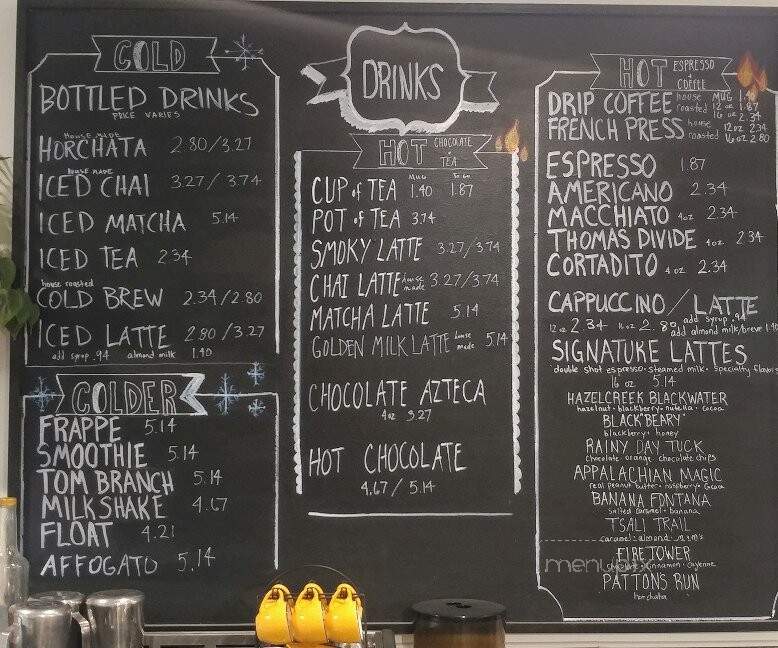 COLD
BOTTLED DRINKS
PRICE VARIES
HOUSE MADE
HORCHATA 2.80/3.27
house made
ICED CHAI 3.27/3.74
ICED MATCHA 5.14
ICED TEA 2.34
house roasted
COLD BREW 2.34/2.80
ICED LATTE 2.80/3.27
add syrup .94 almond milk 1.40
COLDER
FRAPPE 5.14
SMOOTHIE 5.14
TOM BRANCH 5.14
MILKSHAKE 4.67
FLOAT 4.21
AFFOGATO 5.14
DRINKS
HOT CHOCOLATE + TEA
CUP of TEA MUG 1.40 TO GO 1.87
POT of TEA 3.74
SMOKY LATTE 3.27/3.74
CHAI LATTE house made 3.27/3.74
MATCHA LATTE 5.14
GOLDEN MILK LATTE house made 5.14
CHOCOLATE AZTECA
4oz 3.27
HOT CHOCOLATE
4.67/5.14
HOT ESPRESSO + COFFEE
DRIP COFFEE house roasted MUG 1.40
12 oz 1.87
16 oz 2.34
FRENCH PRESS house roasted 12oz 2.34
16oz 2.80
ESPRESSO 1.87
AMERICANO 2.34
MACCHIATO 4oz 2.34
THOMAS DIVIDE 4oz 2.34
CORTADITO 4oz 2.34
CAPPUCCINO/LATTE
12oz 2.34 16oz 2.80 add syrup .94
add almond milk/brew 1.40
SIGNATURE LATTES
double shot espresso · steamed milk · specialty flavors
16 oz 5.14
HAZELCREEK BLACKWATER
hazelnut · blackberry · nutella · cocoa
BLACK"BEARY"
blackberry · honey
RAINY DAY TUCK
chocolate · orange · chocolate chips
APPALACHIAN MAGIC
real peanut butter · raspberry · cocoa
BANANA FONTANA
salted caramel · banana
TSALI TRAIL
caramel · almond · m&m's
FIRETOWER
chocolate · cinnamon · cayenne
PATTONS RUN
horchata